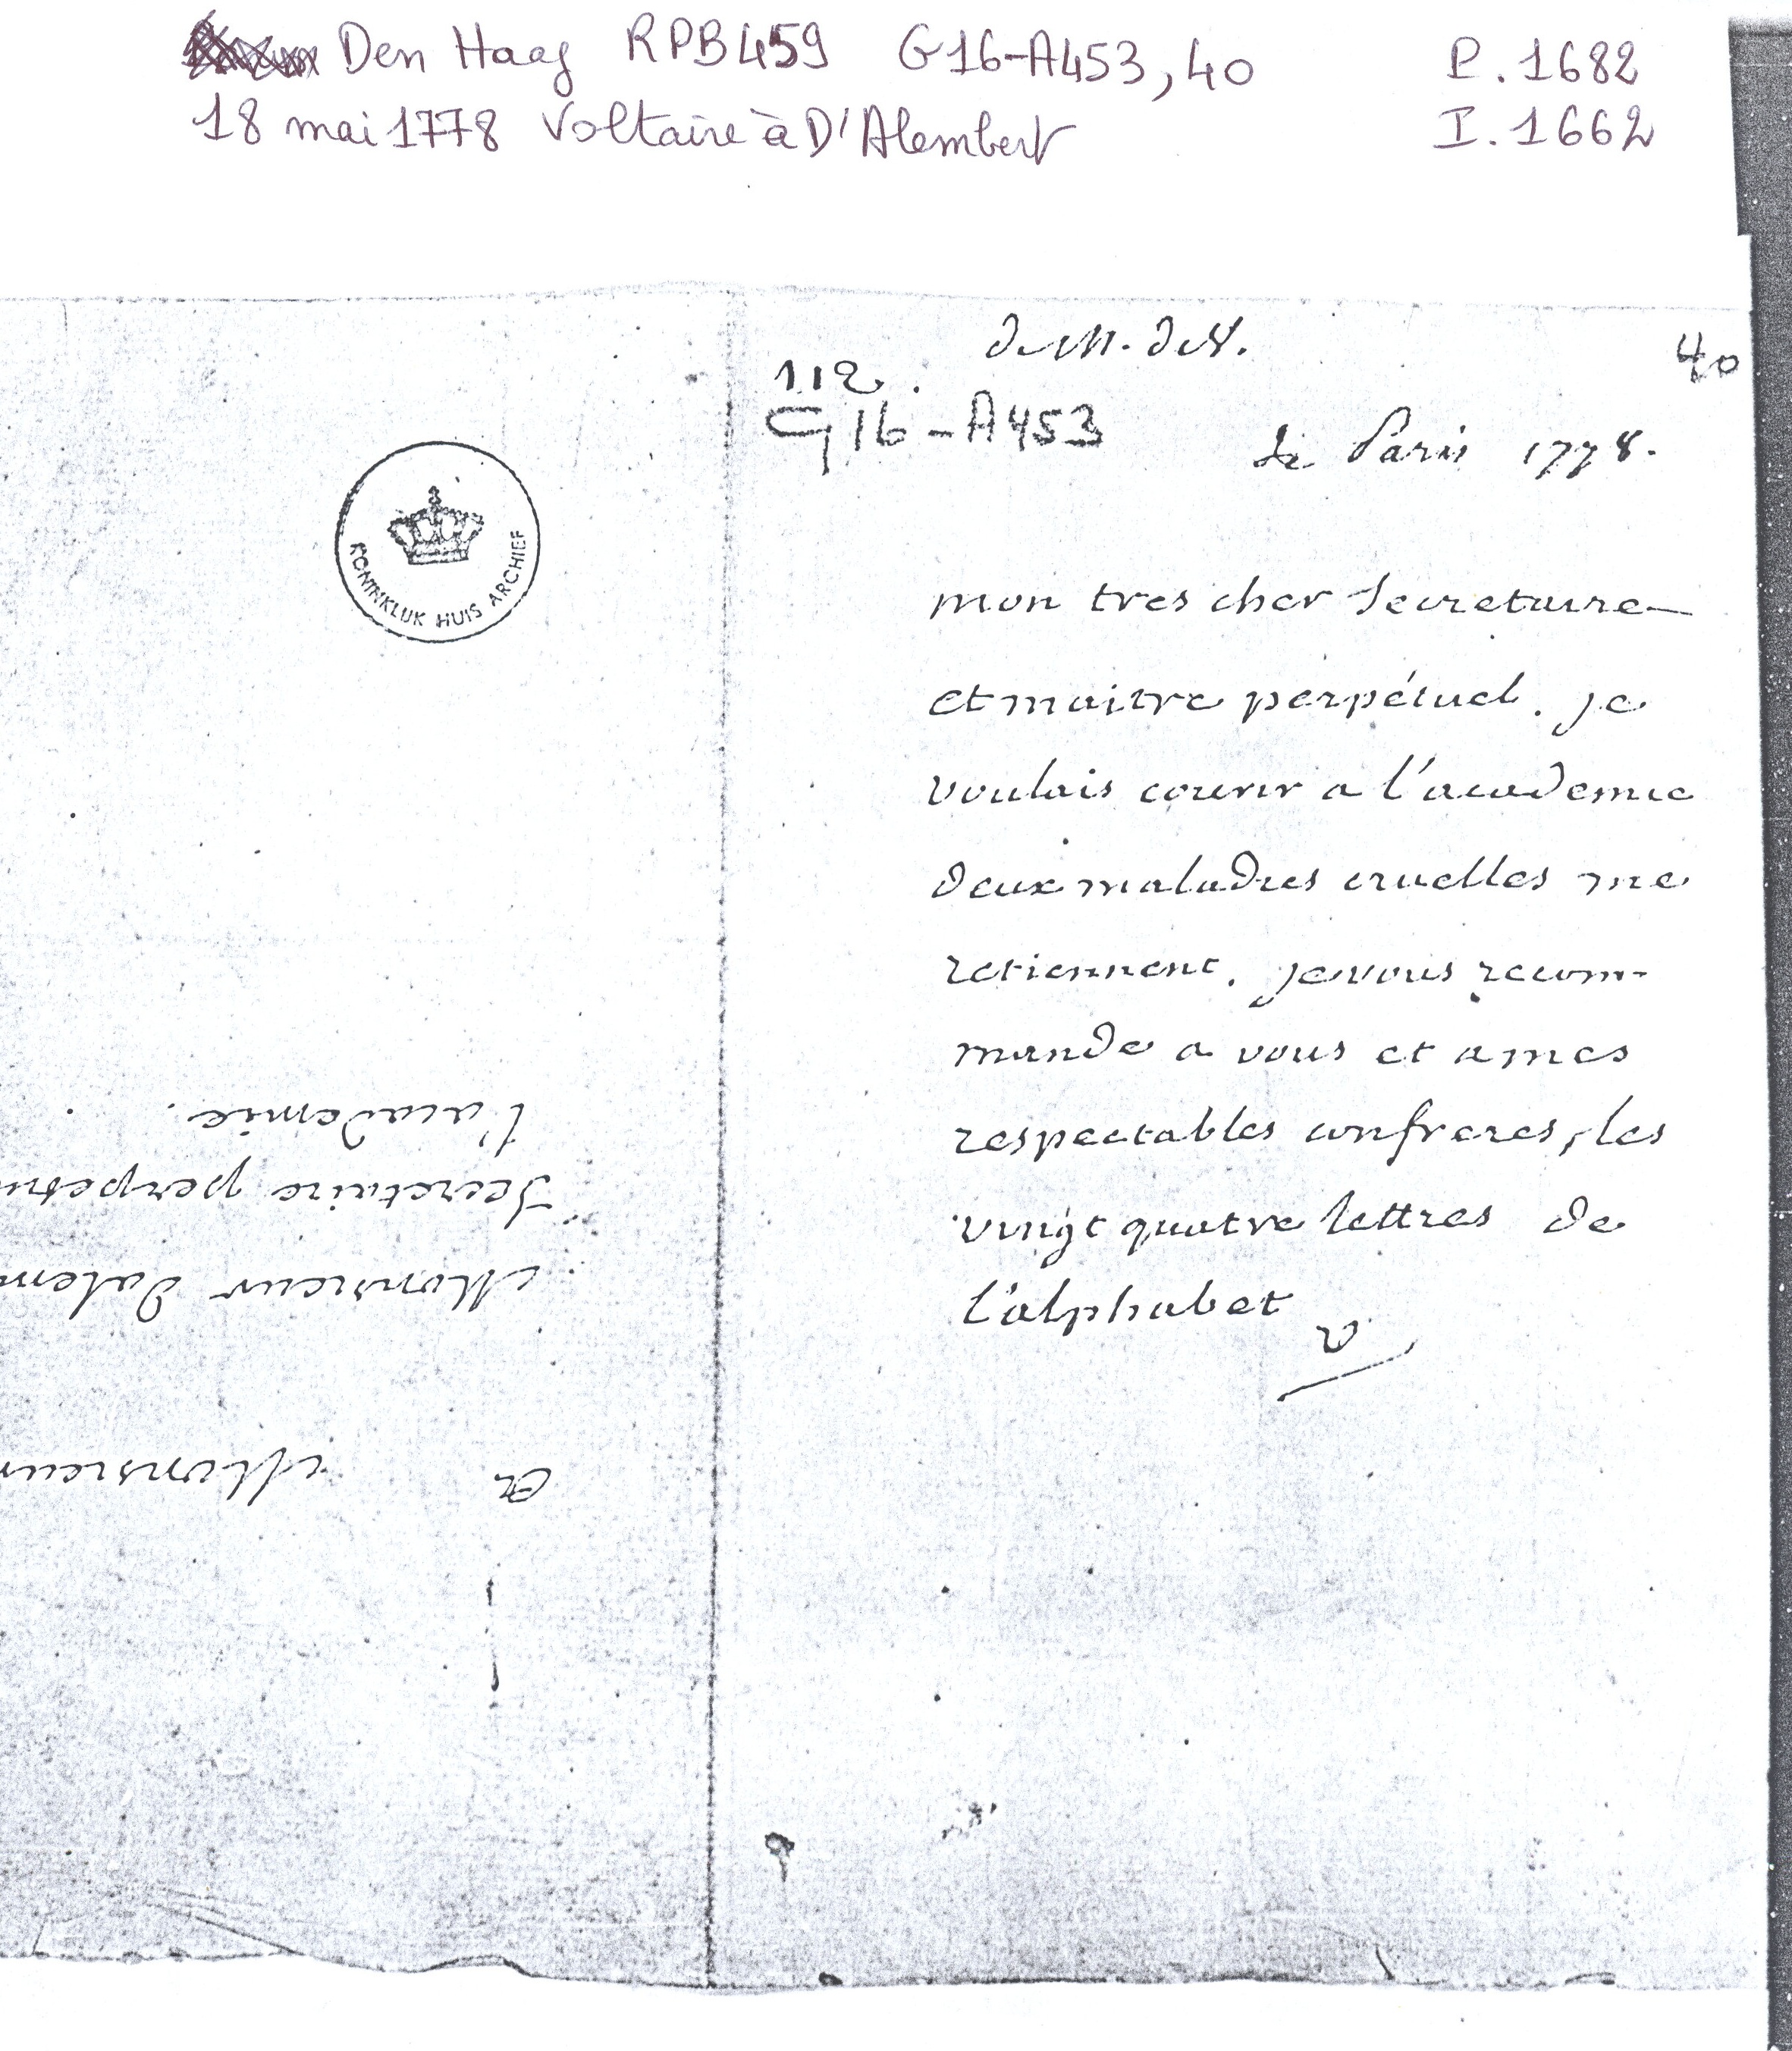 Den Haag RPB459 G16-A453, 40 P. 1682
18 mai 1778 Voltaire à D'Alembert I. 1662
de M. de V.
40
112.
G16-A453
de Paris 1778.
KONINKLIJK HUIS ARCHIEF
mon tres cher Secretaire
et maitre perpétuel. je
voulais courir a l'academie
deux maladies cruelles me
retiennent. je vous recom-
mande a vous et a mes
respectables confreres, les
vingt quatre lettres de
l'alphabet
V
A Monsieur
Monsieur dalem
Secretaire perpetu
l'academie.